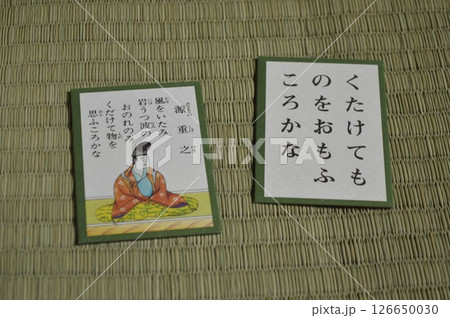 源重之
風をいたみ
岩うつ波の
おのれのみ
くだけて物を
思ふころかな
くたけても
のをおもふ
ころかな
126650030